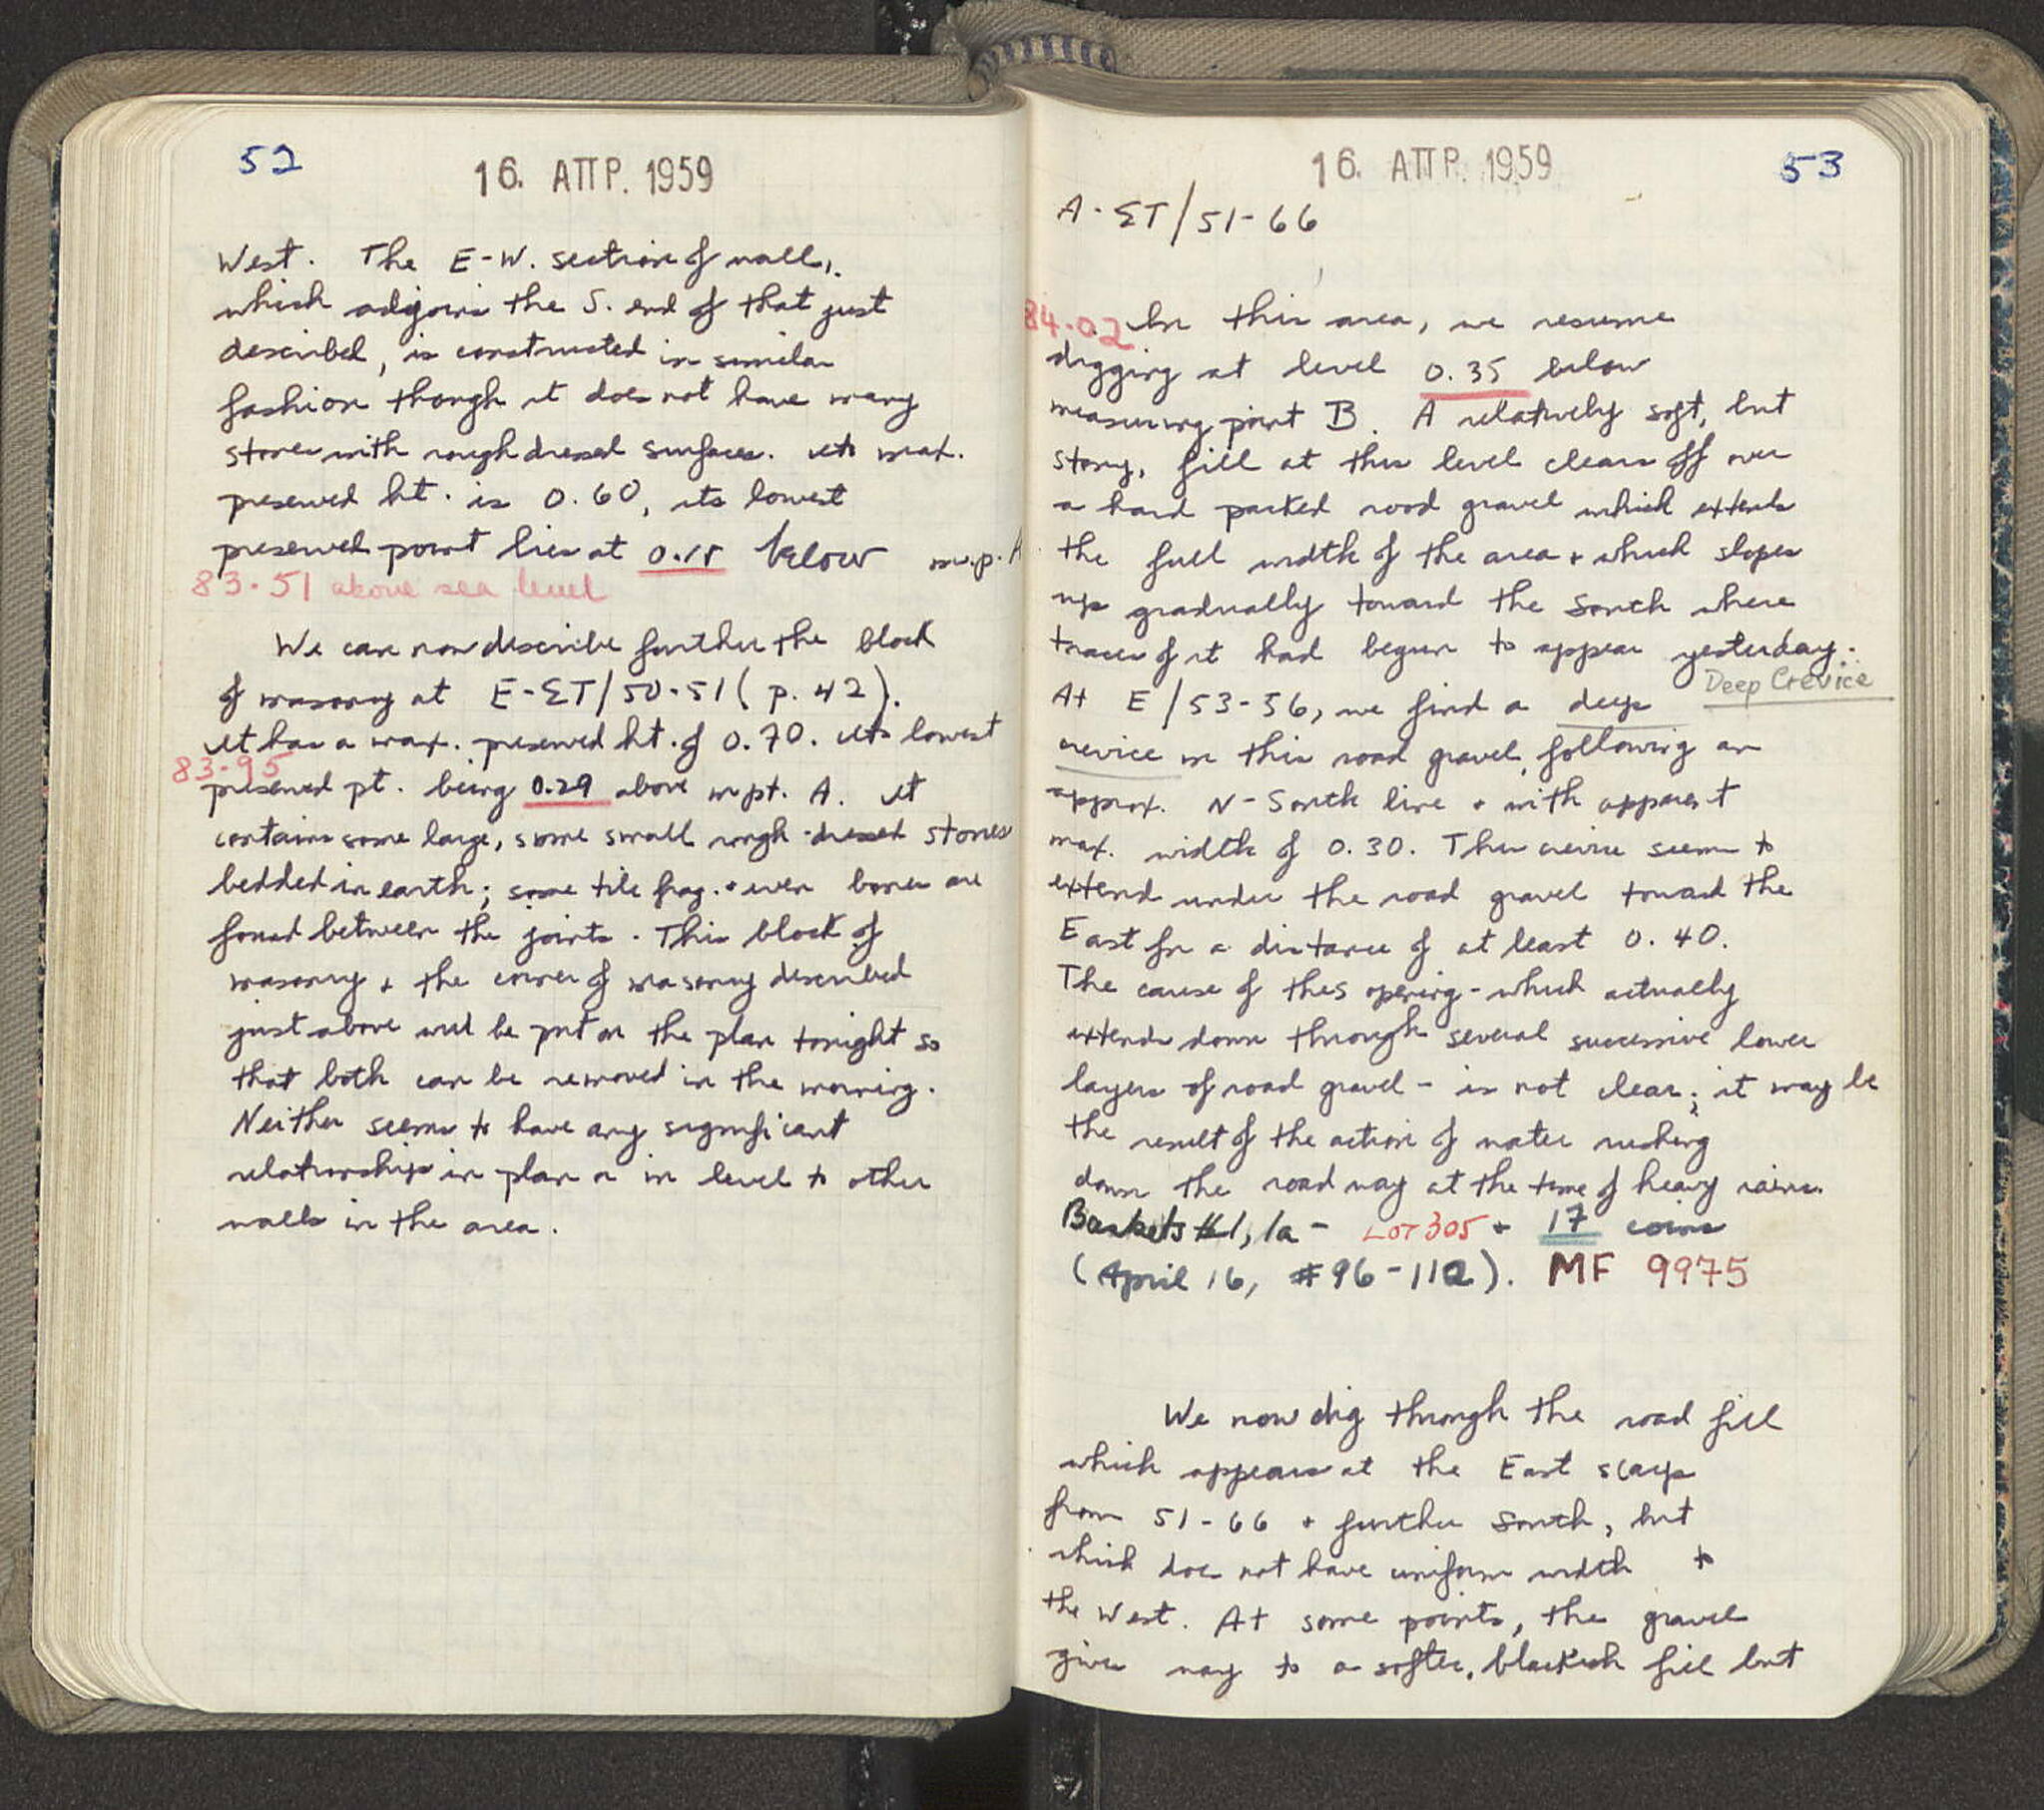 52
16. ΑΠΡ. 1959
West. The E-W. section of wall,
which adjoins the S. end of that just
described, is constructed in similar
fashion though it does not have many
stones with rough dressed surfaces. Its max.
preserved ht. is 0.60, its lowest
preserved point lies at 0.15 below m.p. A
83.51 above sea level
We can now describe further the block
of masonry at E-ΣΤ/50-51 (p. 42).
It has a max. preserved ht. of 0.70. Its lowest
83.95
preserved pt. being 0.29 above m pt. A. It
contains some large, some small rough-dressed stones
bedded in earth; some tile frag. + even bones are
found between the joints. This block of
masonry + the corner of masonry described
just above will be put on the plan tonight so
that both can be removed in the morning.
Neither seems to have any significant
relationship in plan or in level to other
walls in the area.
16. ΑΠΡ. 1959
53
A-ΣΤ/51-66
84.02 In this area, we resume
digging at level 0.35 below
measuring point B. A relatively soft, but
stony, fill at this level clears off over
a hard packed road gravel which extends
the full width of the area + which slopes
up gradually toward the South where
traces of it had begun to appear yesterday.
Deep Crevice
At E/53-56, we find a deep
crevice in this road gravel, following an
approx. N-South line + with apparent
max. width of 0.30. This crevice seems to
extend under the road gravel toward the
East for a distance of at least 0.40.
The cause of this opening - which actually
extends down through several successive lower
layers of road gravel - is not clear; it may be
the result of the action of water rushing
down the roadway at the time of heavy rains.
Baskets #1, 1a - Lot 305 + 17 coins
(April 16, #96-112). MF 9975
We now dig through the road fill
which appears at the East scarp
from 51-66 + further South, but
which does not have uniform width to
the West. At some points, the gravel
gives way to a softer, blackish fill but